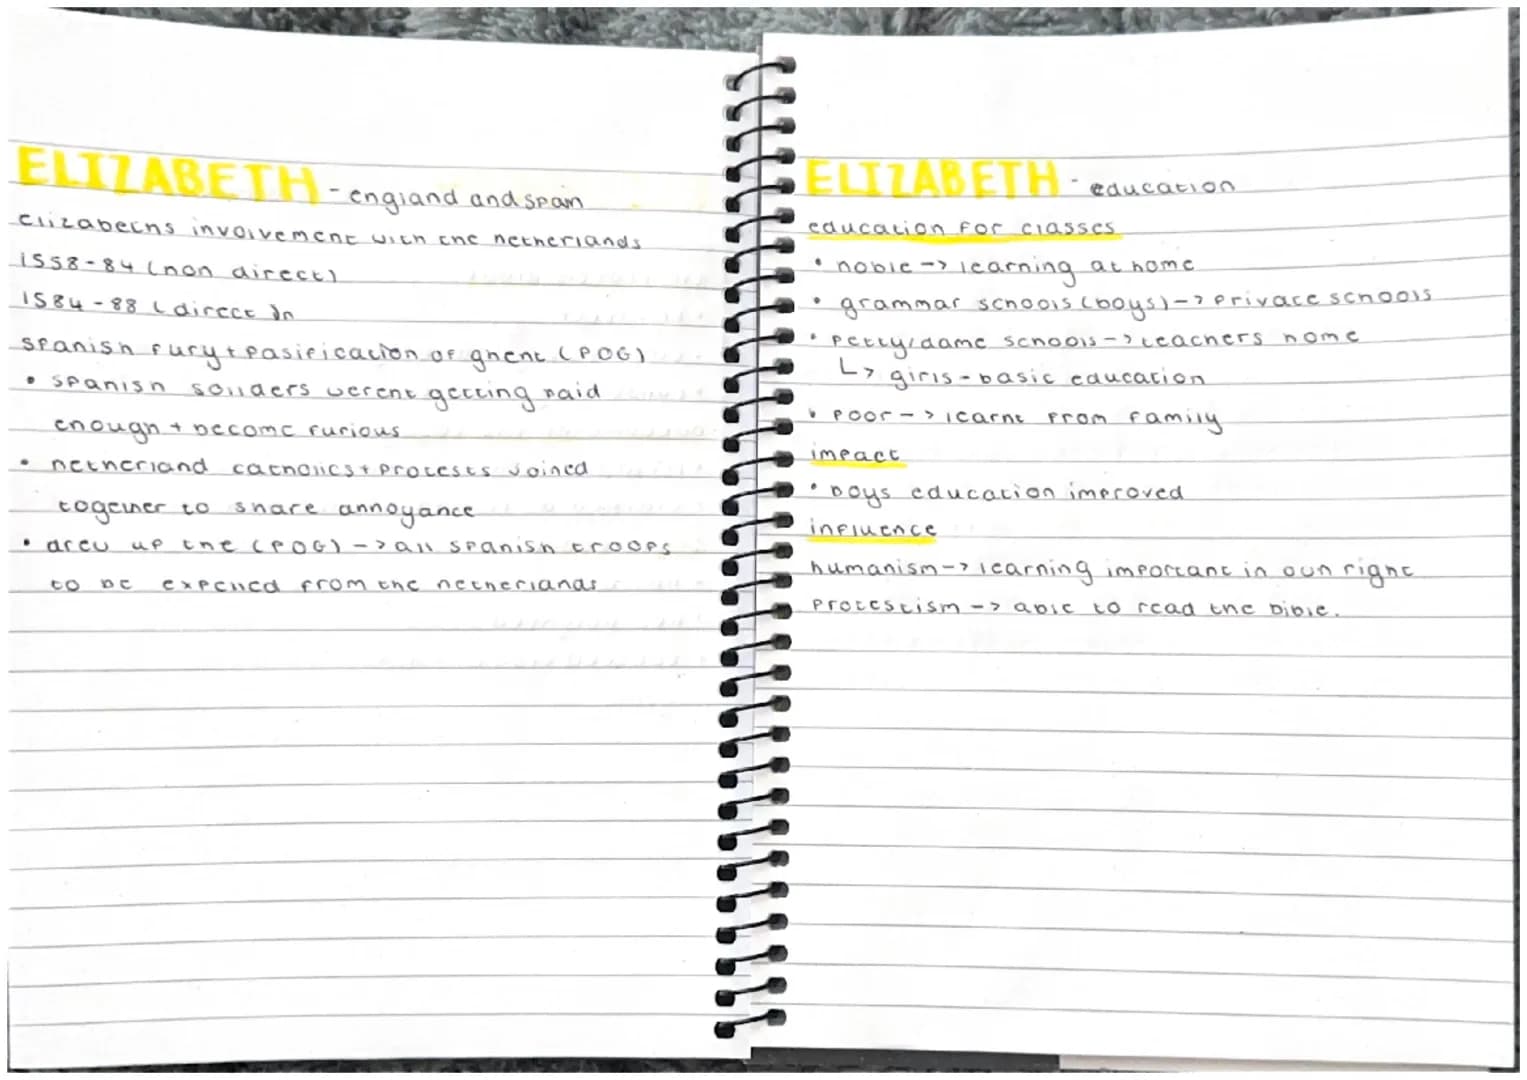 ELIZABETH - england and spain
elizabeths involvement with the netherlands
1558-84 (non direct)
1584-88 (direct)
spanish fury + pasification of ghent (POG)
• spanish solders werent getting paid
enough + become furious
• netherland catholics + protests joined
together to share annoyance
• drew up the (POG) -> all spanish troops
to be expelled from the netherlands
ELIZABETH - education
education for classes
• noble -> learning at home
• grammar schools (boys) -> private schools
• petty/dame schools -> teachers home
↳ girls - basic education
• poor -> learnt from family
impact
• boys education improved
influence
humanism -> learning important in own right
protestism -> able to read the bible.